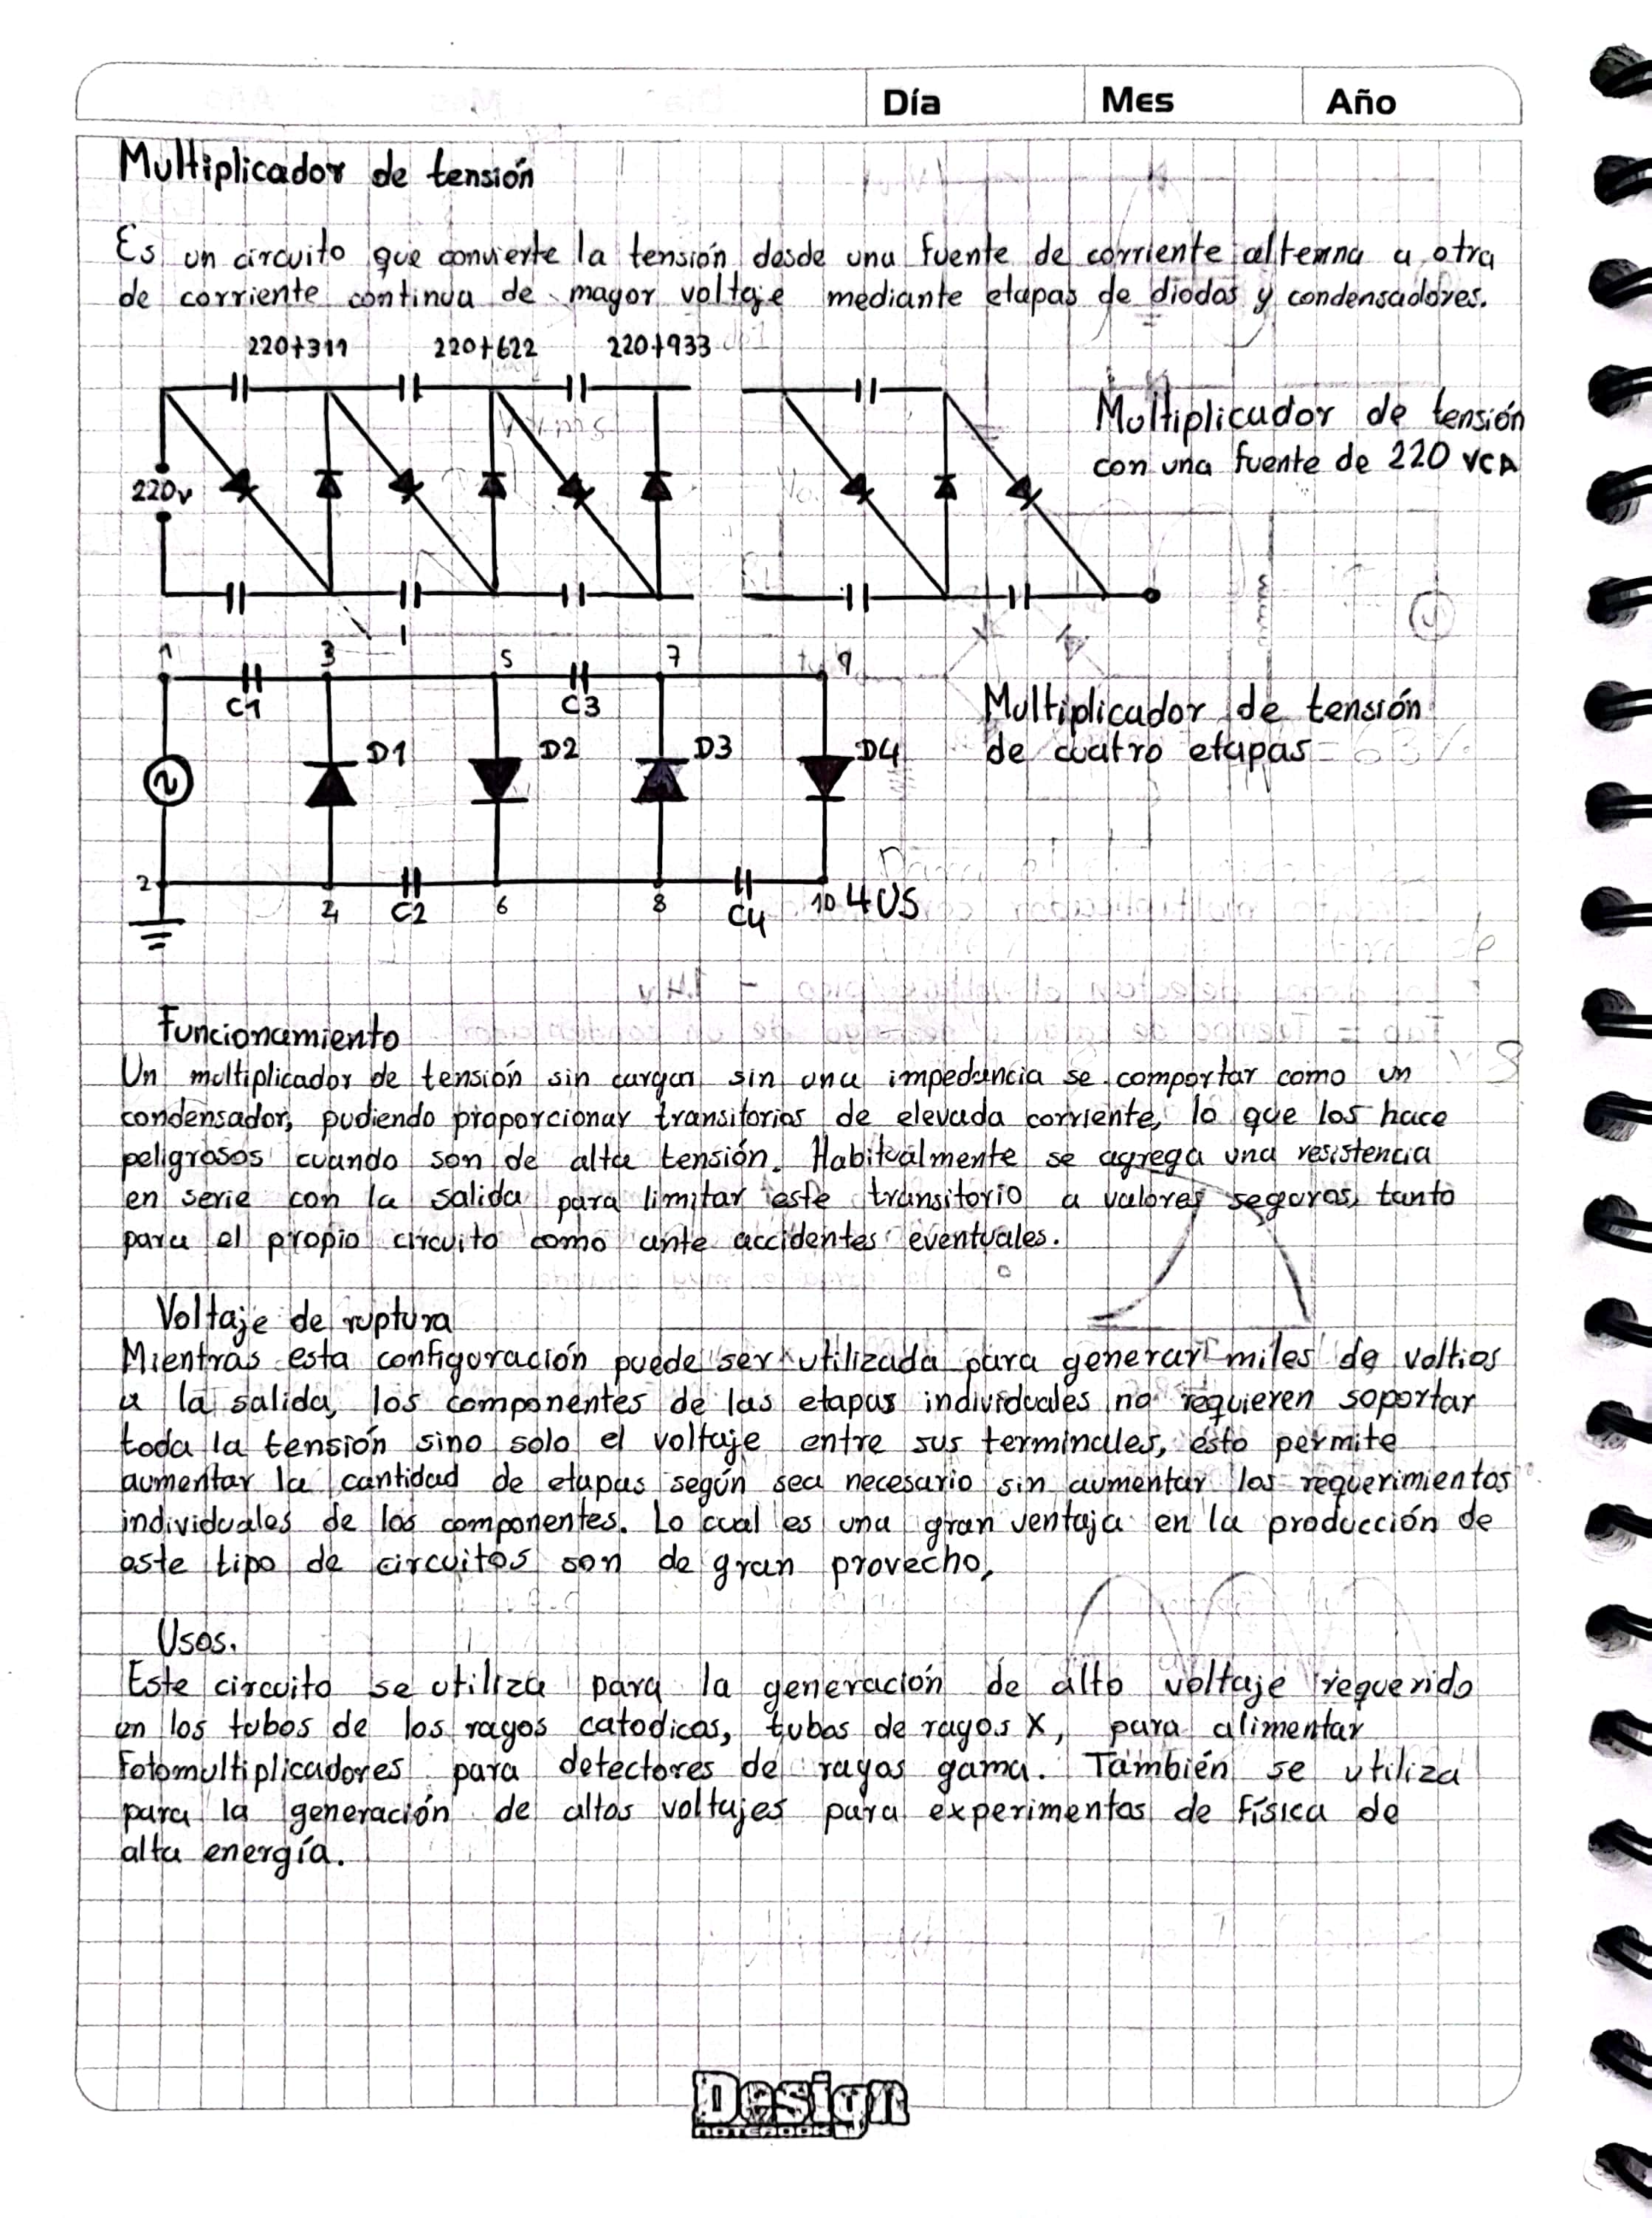 Día Mes Año
Multiplicador de tensión
Es un circuito que convierte la tensión desde una fuente de corriente alterna a otra
de corriente continua de mayor voltaje mediante etapas de diodos y condensadores.
220+311 220+622 220+933
Multiplicador de tensión
con una fuente de 220 VCA
220v
1 3 5 7 9
C1 C3
Multiplicador de tensión
de cuatro etapas
D1 D2 D3 D4
2
4 C2 6 8 C4 10 4US
Funcionamiento
Un multiplicador de tensión sin cargar sin una impedancia se comportar como un
condensador, pudiendo proporcionar transitorios de elevada corriente, lo que los hace
peligrosos cuando son de alta tensión. Habitualmente se agrega una resistencia
en serie con la salida para limitar este transitorio a valores seguros, tanto
para el propio circuito como ante accidentes eventuales.
Voltaje de ruptura
Mientras esta configuración puede ser utilizada para generar miles de voltios
a la salida, los componentes de las etapas individuales no requieren soportar
toda la tensión sino solo el voltaje entre sus terminales, esto permite
aumentar la cantidad de etapas según sea necesario sin aumentar los requerimientos
individuales de los componentes. Lo cual es una gran ventaja en la producción de
este tipo de circuitos son de gran provecho.
Usos.
Este circuito se utiliza para la generación de alto voltaje requerido
en los tubos de los rayos catodicos, tubos de rayos X, para alimentar
fotomultiplicadores para detectores de rayos gama. También se utiliza
para la generación de altos voltajes para experimentos de física de
alta energía.
Design
NOTEBOOK